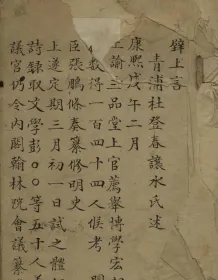 壁上言
青浦杜登春讓水氏述
康熙戊午二月
上諭三品堂上官薦舉博學宏
教得一百四十四人候考
臣張鵬條奏纂修明史
上遂定期三月初一日試之體
詩録取文學彭〇〇等五十人
議官仍令內閣翰林院會議纂